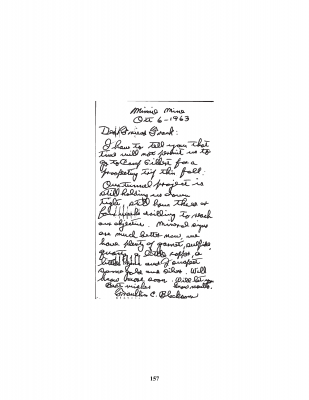 Minnie Mine
Oct 6-1963
Dear Friend Frank:
I have to tell you that
time will not permit us to
go to Camp Gilbert for a
prospecting trip this fall.
Our tunnel project is
still holding us down
tight, still have three or
four weeks drilling to reach
our objective. Mineral signs
are much better now, we
have plenty of garnet, sulfide
quartz, a little copper, a
little and I expect
some gold and silver. Will
know more soon. Will let you
Best wishes know results.
Franklin C. Blackson
157